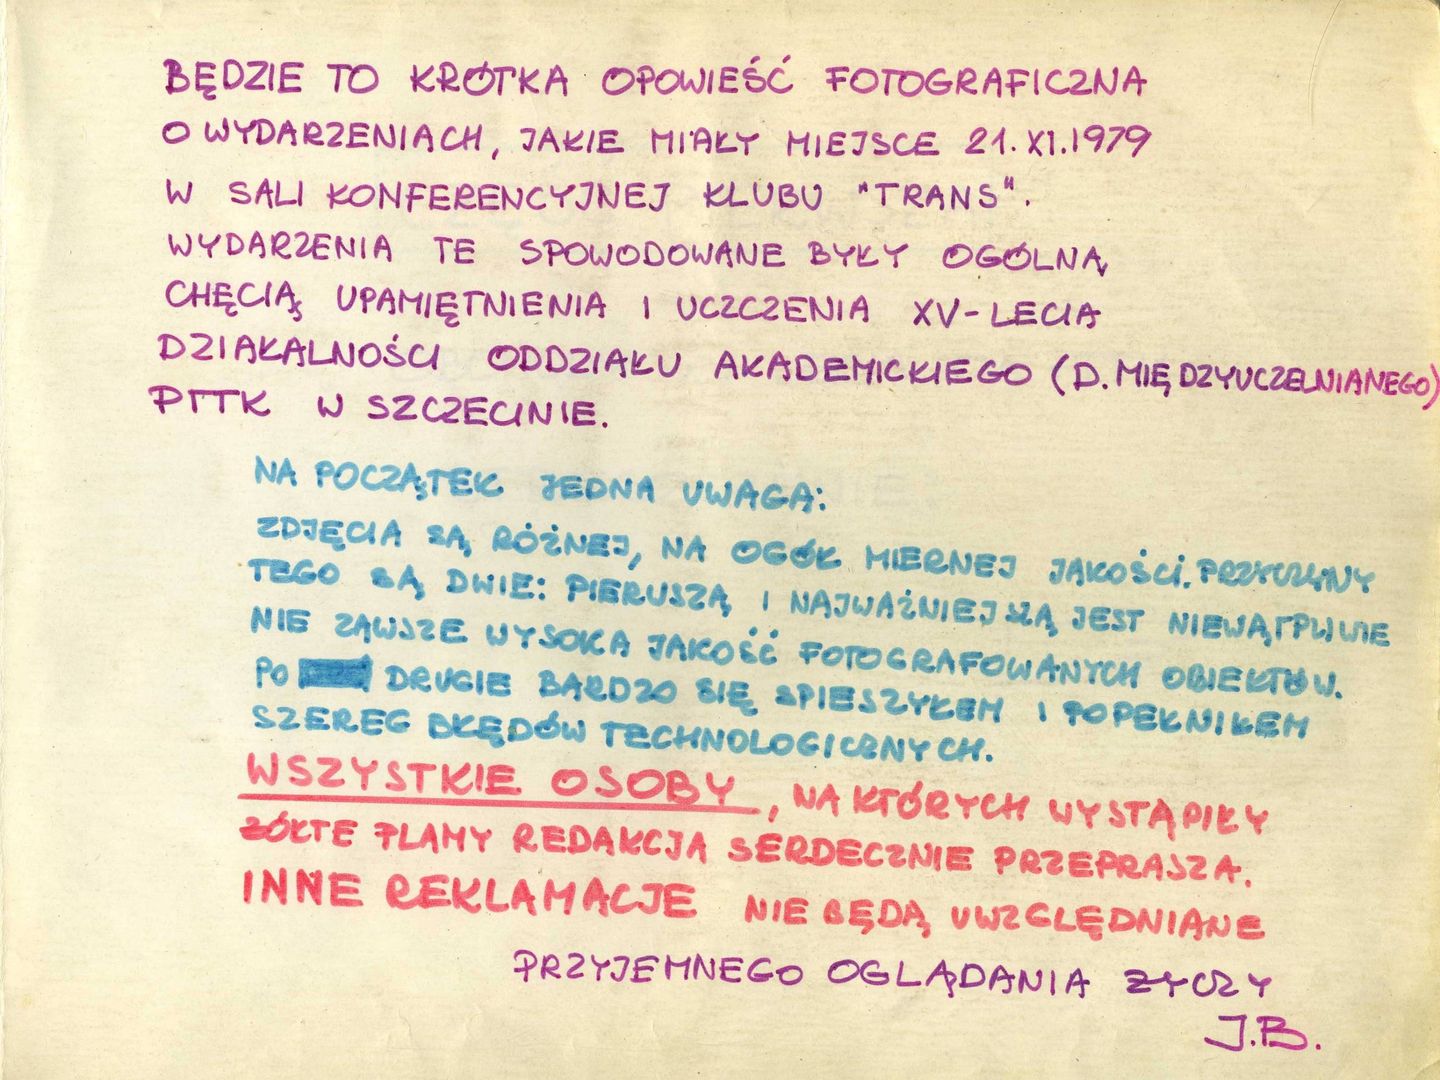 BĘDZIE TO KRÓTKA OPOWIEŚĆ FOTOGRAFICZNA
O WYDARZENIACH, JAKIE MIAŁY MIEJSCE 21.XI.1979
W SALI KONFERENCYJNEJ KLUBU "TRANS".
WYDARZENIA TE SPOWODOWANE BYŁY OGÓLNĄ
CHĘCIĄ UPAMIĘTNIENIA I UCZCZENIA XV-LECIA
DZIAŁALNOŚCI ODDZIAŁU AKADEMICKIEGO (D. MIĘDZYUCZELNIANEGO)
PTTK W SZCZECINIE.
NA POCZĄTEK JEDNA UWAGA:
ZDJĘCIA SĄ RÓŻNEJ, NA OGÓŁ MIERNEJ JAKOŚCI. PRZYCZYNY
TEGO SĄ DWIE: PIERWSZĄ I NAJWAŻNIEJSZĄ JEST NIEWĄTPLIWIE
NIE ZAWSZE WYSOKA JAKOŚĆ FOTOGRAFOWANYCH OBIEKTÓW.
PO DRUGIE BARDZO SIĘ SPIESZYŁEM I POPEŁNIŁEM
SZEREG BŁĘDÓW TECHNOLOGICZNYCH.
WSZYSTKIE OSOBY, NA KTÓRYCH WYSTĄPIŁY
ŻÓŁTE PLAMY REDAKCJA SERDECZNIE PRZEPRASZA.
INNE REKLAMACJE NIE BĘDĄ UWZGLĘDNIANE
PRZYJEMNEGO OGLĄDANIA ŻYCZY
J.B.